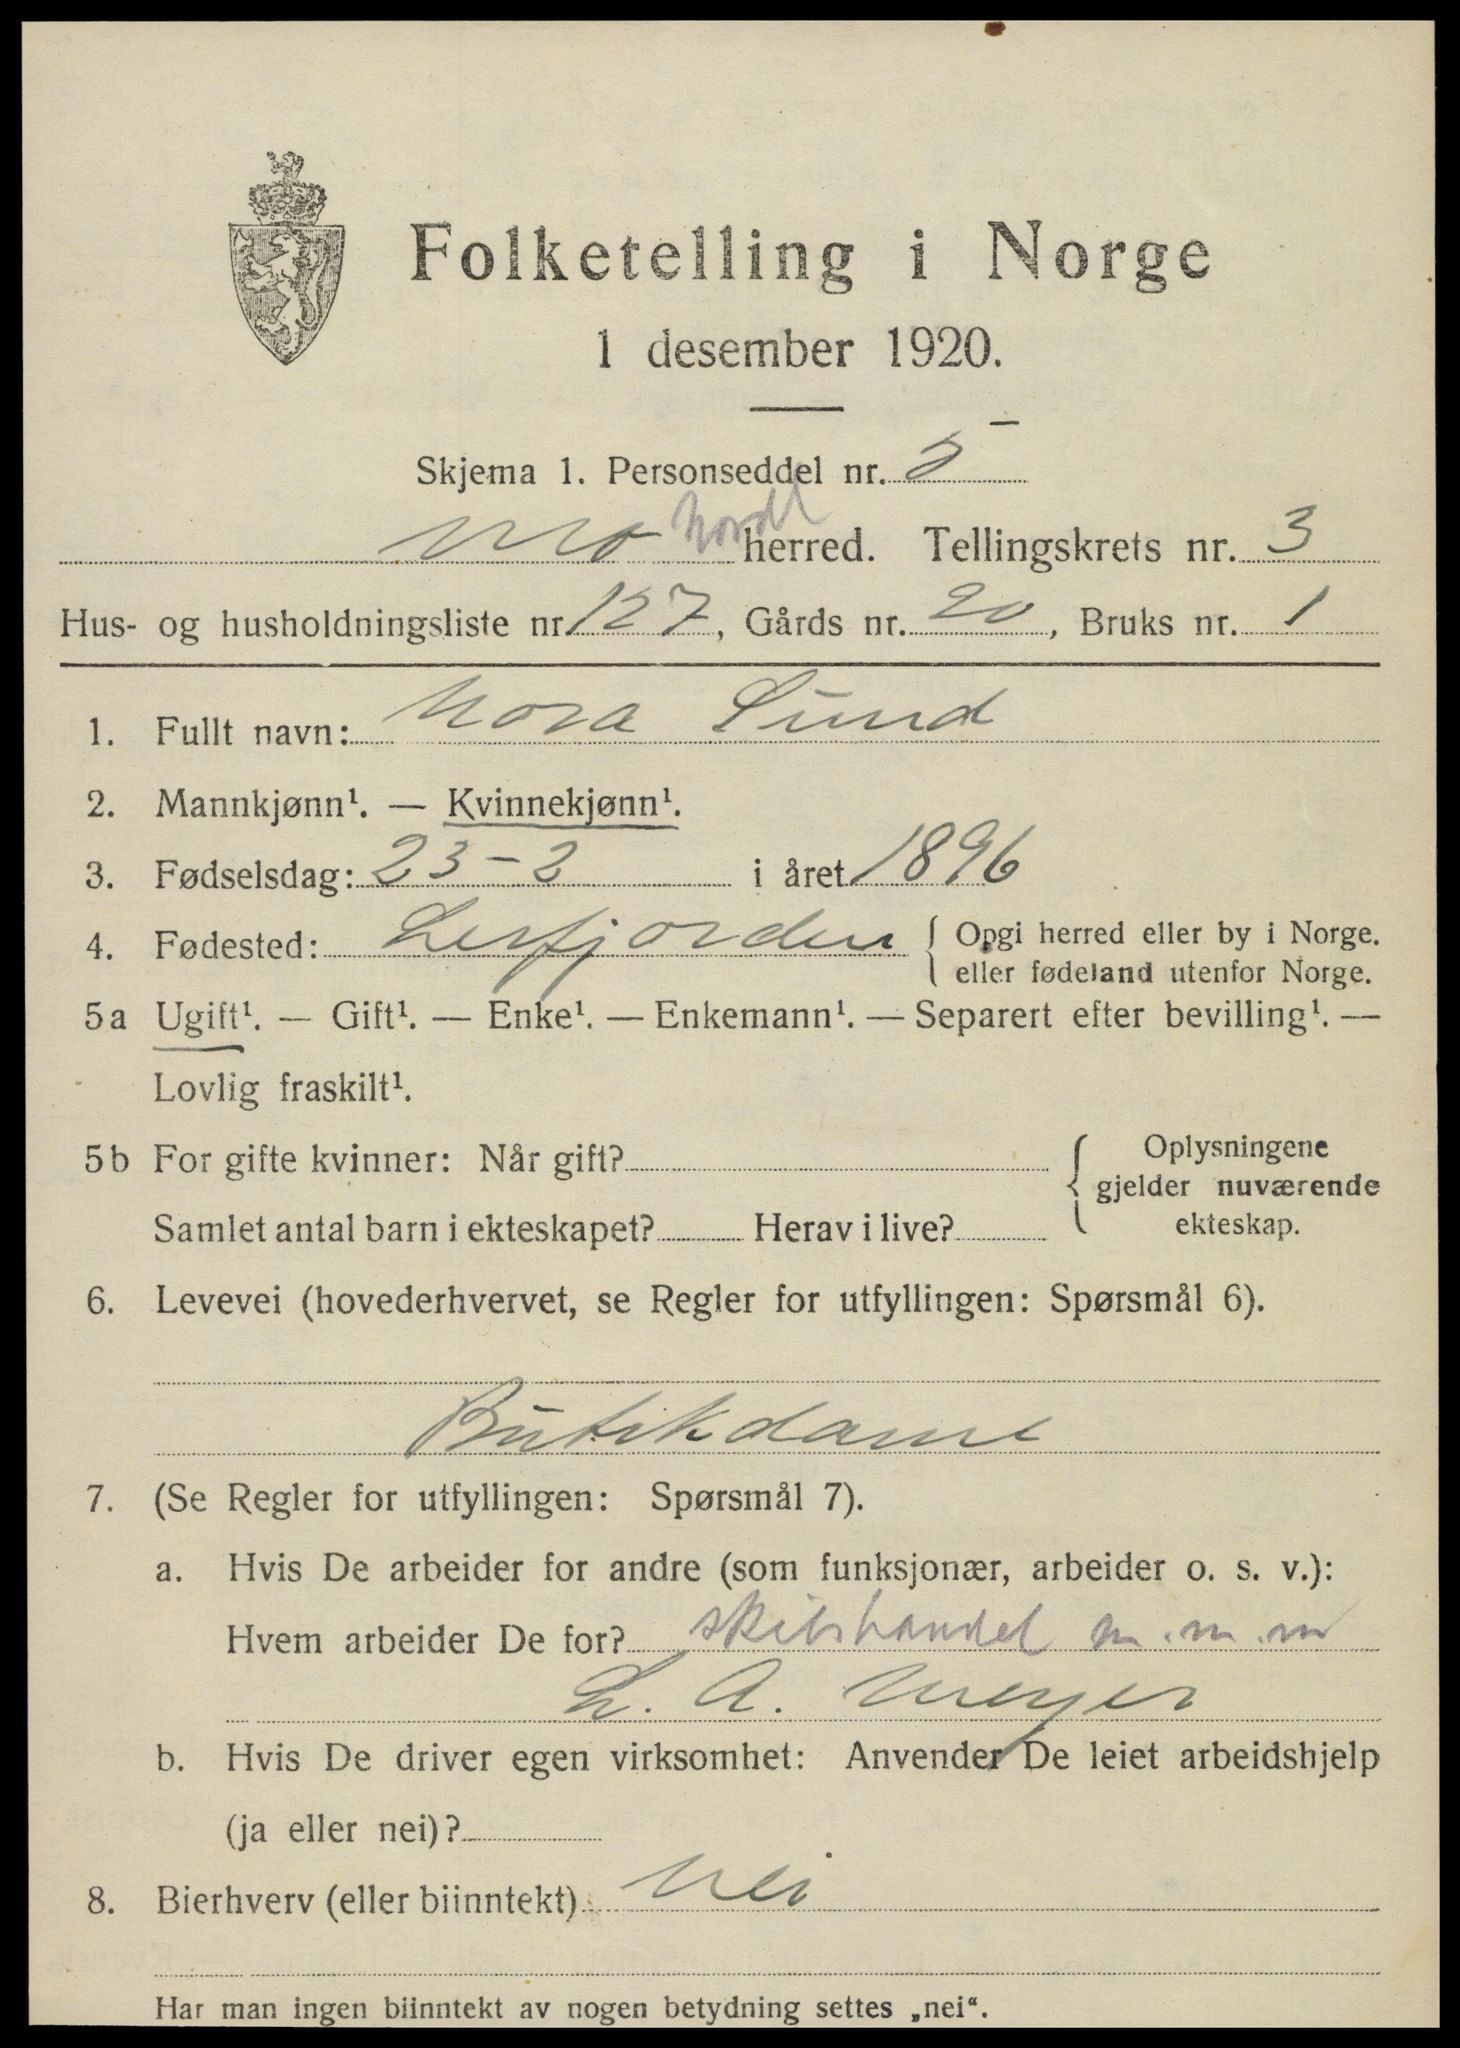 Folketelling i Norge
1 desember 1920.
Skjema 1. Personseddel nr. 5
Mo Nordl herred. Tellingskrets nr. 3
Hus- og husholdningsliste nr. 127, Gårds nr. 20, Bruks nr. 1
1. Fullt navn: Nora Sund
2. Mannkjønn¹. — Kvinnekjønn¹.
3. Fødselsdag: 23-2 i året 1896
4. Fødested: Lerfjorden { Opgi herred eller by i Norge.
eller fødeland utenfor Norge.
5a Ugift¹. — Gift¹. — Enke¹. — Enkemann¹. — Separert efter bevilling¹. —
Lovlig fraskilt¹.
5b For gifte kvinner: Når gift? { Oplysningene
gjelder nuværende
Samlet antal barn i ekteskapet? Herav i live? ekteskap.
6. Levevei (hovederhvervet, se Regler for utfyllingen: Spørsmål 6).
Butikdame
7. (Se Regler for utfyllingen: Spørsmål 7).
a. Hvis De arbeider for andre (som funksjonær, arbeider o. s. v.):
Hvem arbeider De for? skibshandel m.m.m
L. A. Meyer
b. Hvis De driver egen virksomhet: Anvender De leiet arbeidshjelp
(ja eller nei)?
8. Bierhverv (eller biinntekt) Nei
Har man ingen biinntekt av nogen betydning settes „nei“.